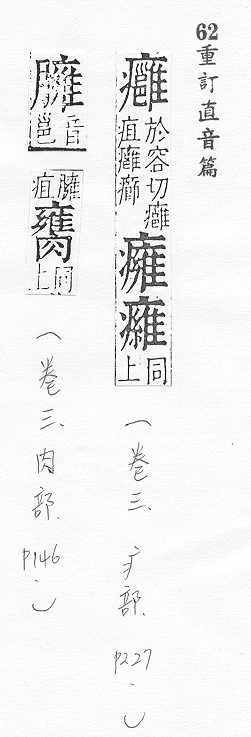 62重訂直音篇
癰於容切癰疽癰癤癕同上
(卷三、疒部、P227.)
臃音邕臃疽同上
(卷三、肉部、P146.)